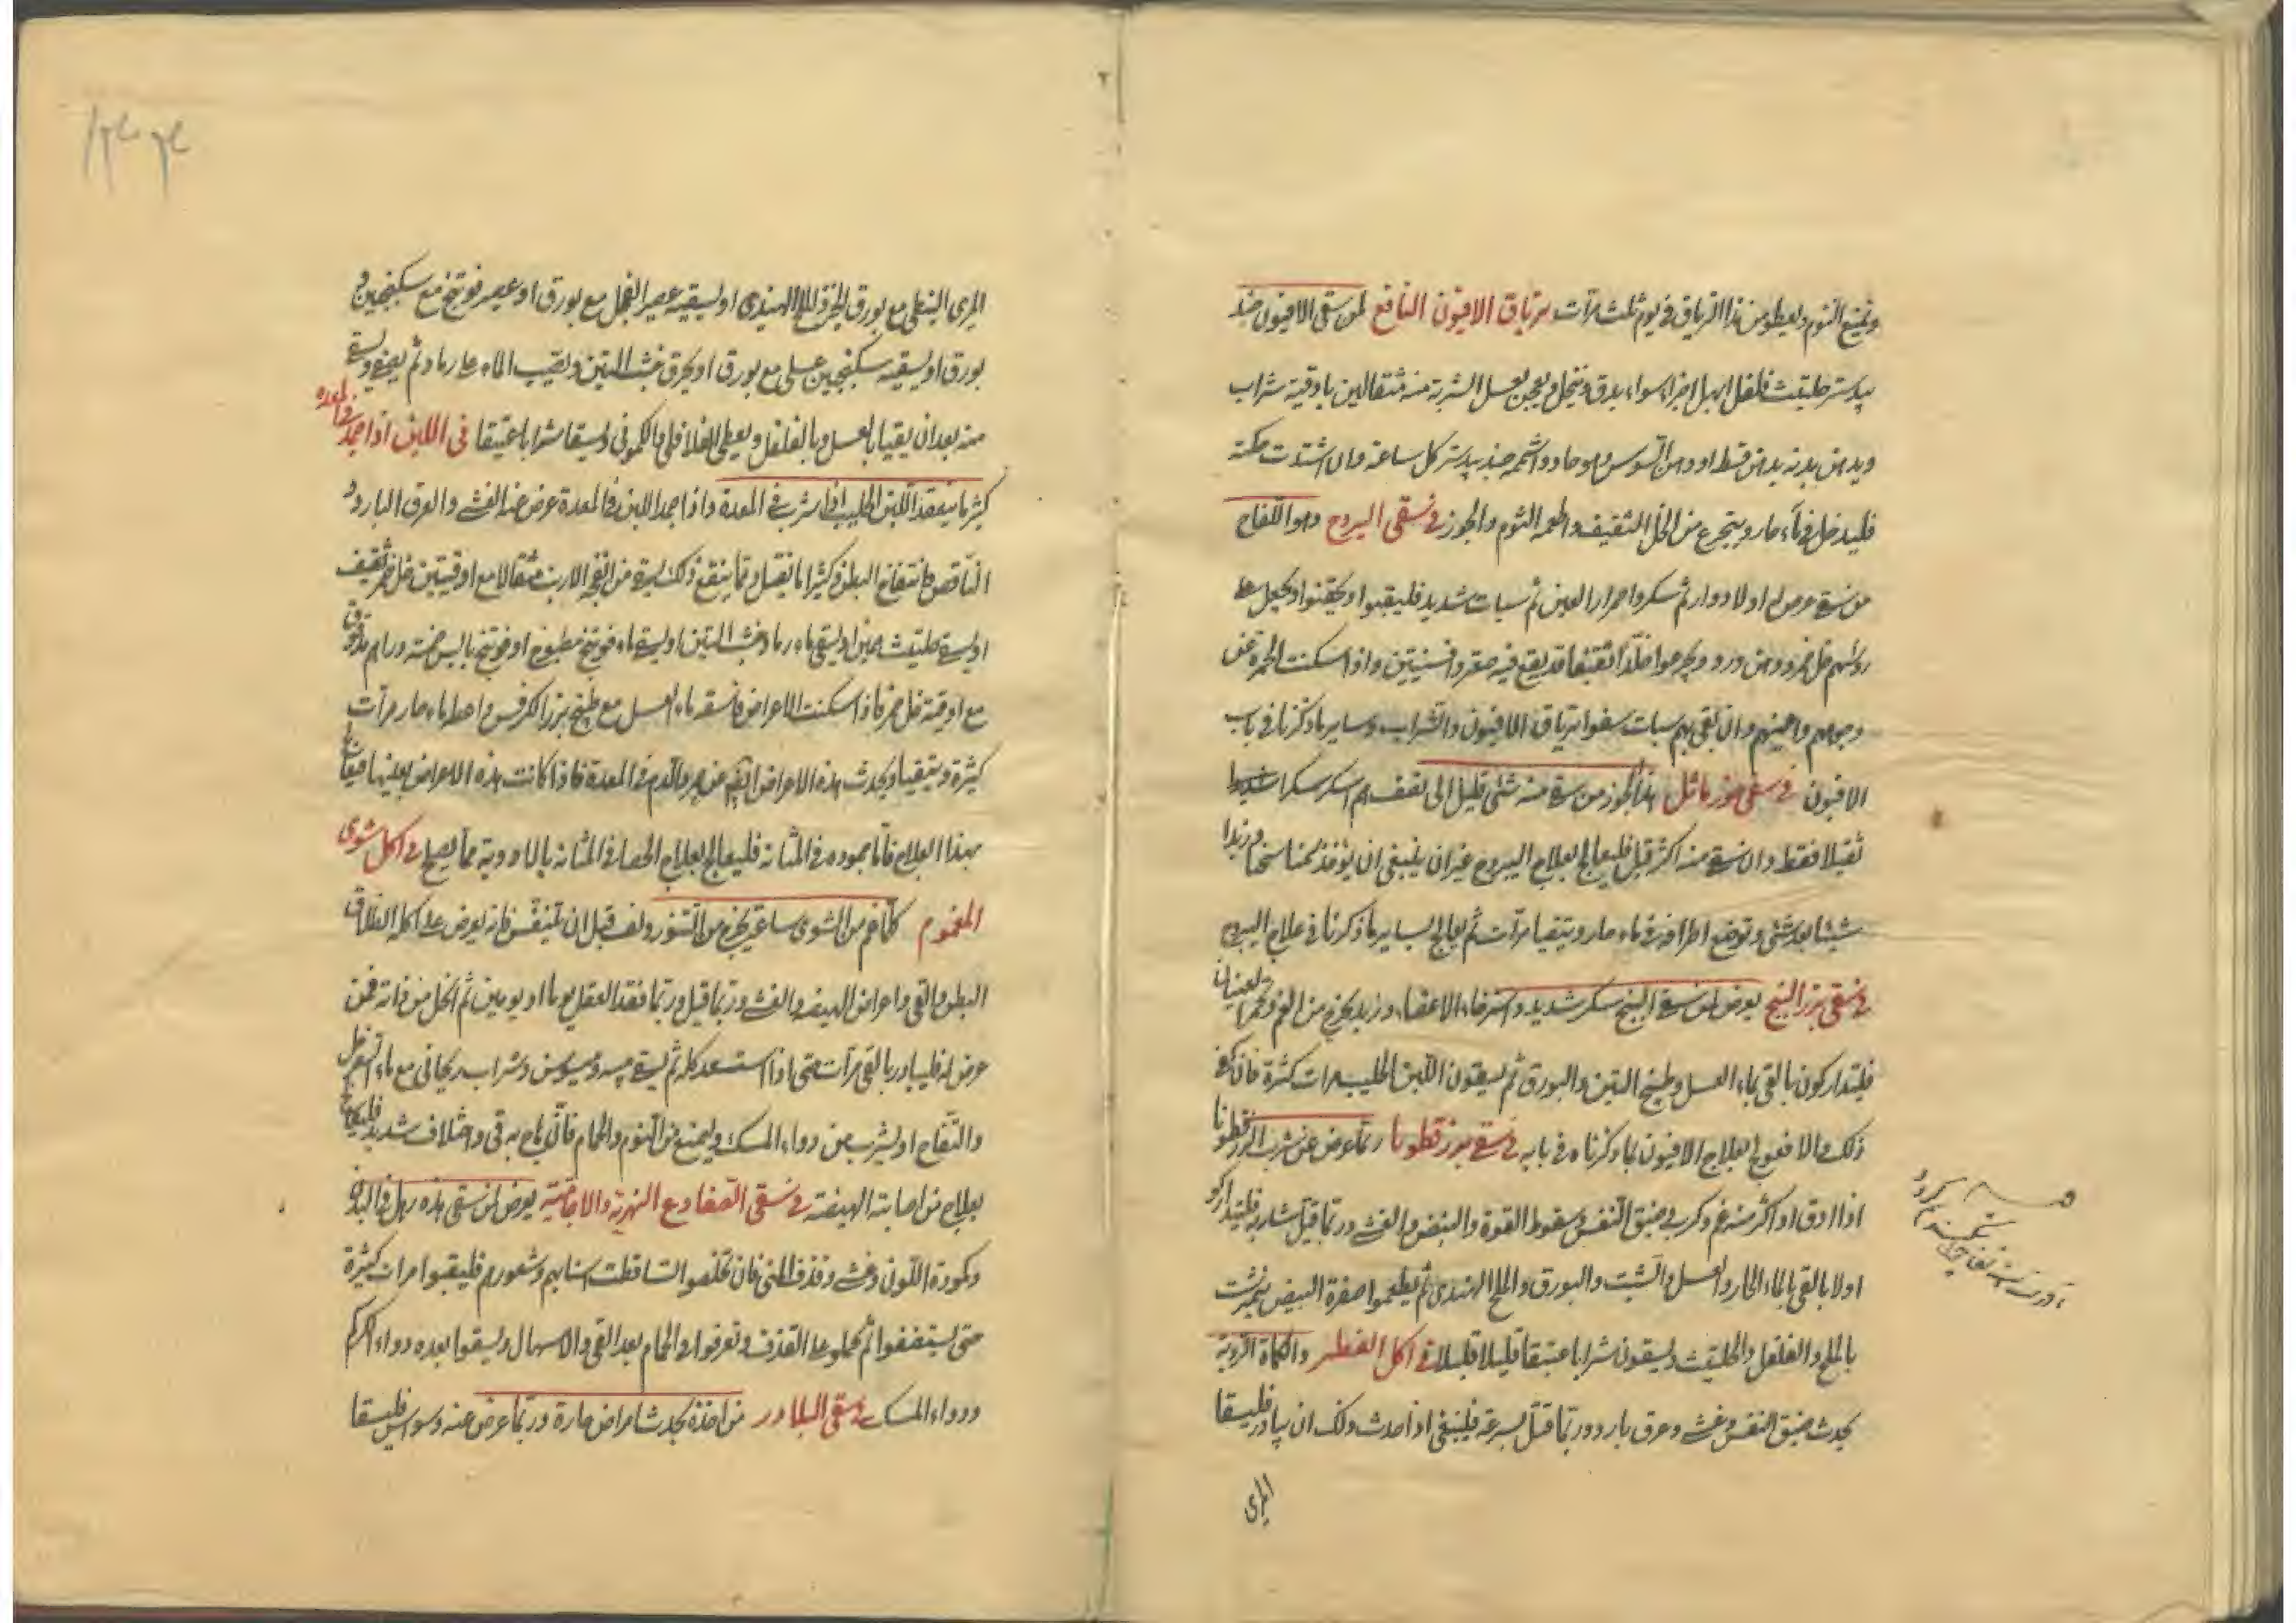 ويمنع النوم ويعطى من هذا الترياق في يوم ثلث مرات ترياق الافيون النافع لمن سقى الافيون جند
بيدستر حلتيت فلفل ابهل اجزاء سواء يدق وينخل ويعجن بعسل الشربة منه مثقالين باوقية شراب
ويدهن بدنه بدهن قسط او دهن السوسن وهو حار واشمه جندبيدستر كل ساعة وان اشتدت حكته
فليدخل في ماء حار ويتجرع من الخل الثقيف واطعمه الثوم والجوز في سقى اليبروح وهو اللفاح
من سقى عرض له اولا دوار ثم سكر واحمرار العين ثم سبات شديد فليقيوا او يحقنوا ويجعل على
رؤسهم خل خمر ودهن ورد ويجرعوا خلا ثقيفا قد يقع فيه صعتر وافسنتين واذا سكنت الحمرة عن
وجوههم واعينهم وان بقى بهم سبات سقوا ترياق الافيون والشراب وساير ما ذكرنا في باب
الافيون في سقى جوز ماثل هذا الجوز من سقى منه شئ قليل الى نصف درهم اسكر سكرا شديدا
ثقيلا فقط وان سقى منه اكثر قتل فليعالج بعلاج اليبروح غير ان ينبغى ان يؤخذ سمنا سخنا وزبدا
شيئا بعد شئ وتوضع اطرافه في ماء حار ويتقيا مرات ثم يعالج بساير ما ذكرنا في علاج اليبروح
في سقى بزر البنج يعرض لمن سقى البنج سكر شديد واسترخاء الاعضاء وزبد يخرج من الفم وحمرة العينان
فليتداركون بالقى بماء العسل وطبيخ التين والبورق ثم يسقون اللبن الحليب مرات كثيرة فان كفى
ذلك والا فعولج بعلاج الافيون بما ذكرناه في بابه في سقى بزر قطونا ربما عرض عن شرب البزر قطونا
اذا دق او اكثر منه غم وكرب وضيق النفس وسقوط القوة والنبض والغشى وربما قتل شاربه فليتداركوا
اولا بالقى بالماء الحار والعسل والشبت والبورق والملح الهندى ثم يطعموا صفرة البيض نيمبرشت
بالملح والفلفل والحلتيت ويسقون شرابا عتيقا قليلا قليلا في اكل الفطر والكماة الردية
يحدث ضيق النفس وغشى وعرق بارد وربما قتل بسرعة فينبغى اذا حدث ذلك ان يبادر فليسقا
المرى
المرى النبطى مع بورق الخبز والملح الهندى او ليسقيه عصير الفجل مع بورق او عصير فوتنج مع سكنجبين و
بورق او يسقيه سكنجبين عسلى مع بورق او يحرق خشب التين ويصب الماء على رماده ثم يصفى ويسقى
منه بعد ان يقيا بالعسل وبالفلفل ويعطى الفلافلى والكمونى وليسقا شرابا عتيقا فى اللبن اذا جمد في المعدة
كثيرا ما ينعقد اللبن الحليب اذا شرب في المعدة واذا جمد اللبن في المعدة عرض عنه الغشى والعرق البارد و
النافض وانتفاخ البطن وكثيرا ما يقتل ومما ينفع ذلك ان يسقى من انفحة الارنب مثقالا مع اوقيتين خل خمر ثقيف
او يسقى حلتيت او يسقى ماء رماد خشب التين او يسقى ماء فوتنج مطبوخ او فوتنج يابس خمسة دراهم مدقوق
مع اوقية خل خمر فاذا سكنت الاعراض فاسقه ماء العسل مع طبيخ بزر الكرفس واعطه ماء حار مرات
كثيرة ويتقيا ويحدث هذه الاعراض ايضا عن جمود الدم في المعدة فاذا كانت هذه الاعراض بعينها فيعالج
بهذا العلاج فاما جموده في المثانة فليعالج بعلاج الحصا في المثانة بالادوية مما يصلح في اكل شوى
المغموم كلما غم من الشوى ساعة يخرج من التنور ولف قبل ان يتنفس فانه يعرض على اكله انطلاق
البطن والقى واعراض الهيضة والغشى وربما قتل وربما فقد العقل يوما او يومين ثم انحل من ذاته فمن
عرض له فليبادر بالقى مرات حتى اذا استعد كله ثم يسقى ميسوسن وشراب ريحانى مع ماء السفرجل
والتفاح او يشرب من دواء المسك وليمنع من النوم والحمام فان هاج به قى واختلاف شديد فليعالج
بعلاج من اصابته الهيضة في سقى الضفادع النهرية والاجامية يعرض لمن سقى هذه رهل في البدن
وكمودة اللون وغشى وقذف المنى فان تخلصوا تساقطت اسنانهم وشعورهم فليقيوا مرات كثيرة
حتى يستنظفوا ثم يحملوا على القذف وتعرقوا في الحمام بعد القى والاسهال ويسقوا بعده دواء الكركم
ودواء المسك في سقى البلادر من اخذه يحدث امراض حارة وربما عرض عنه وسواس فليسقا